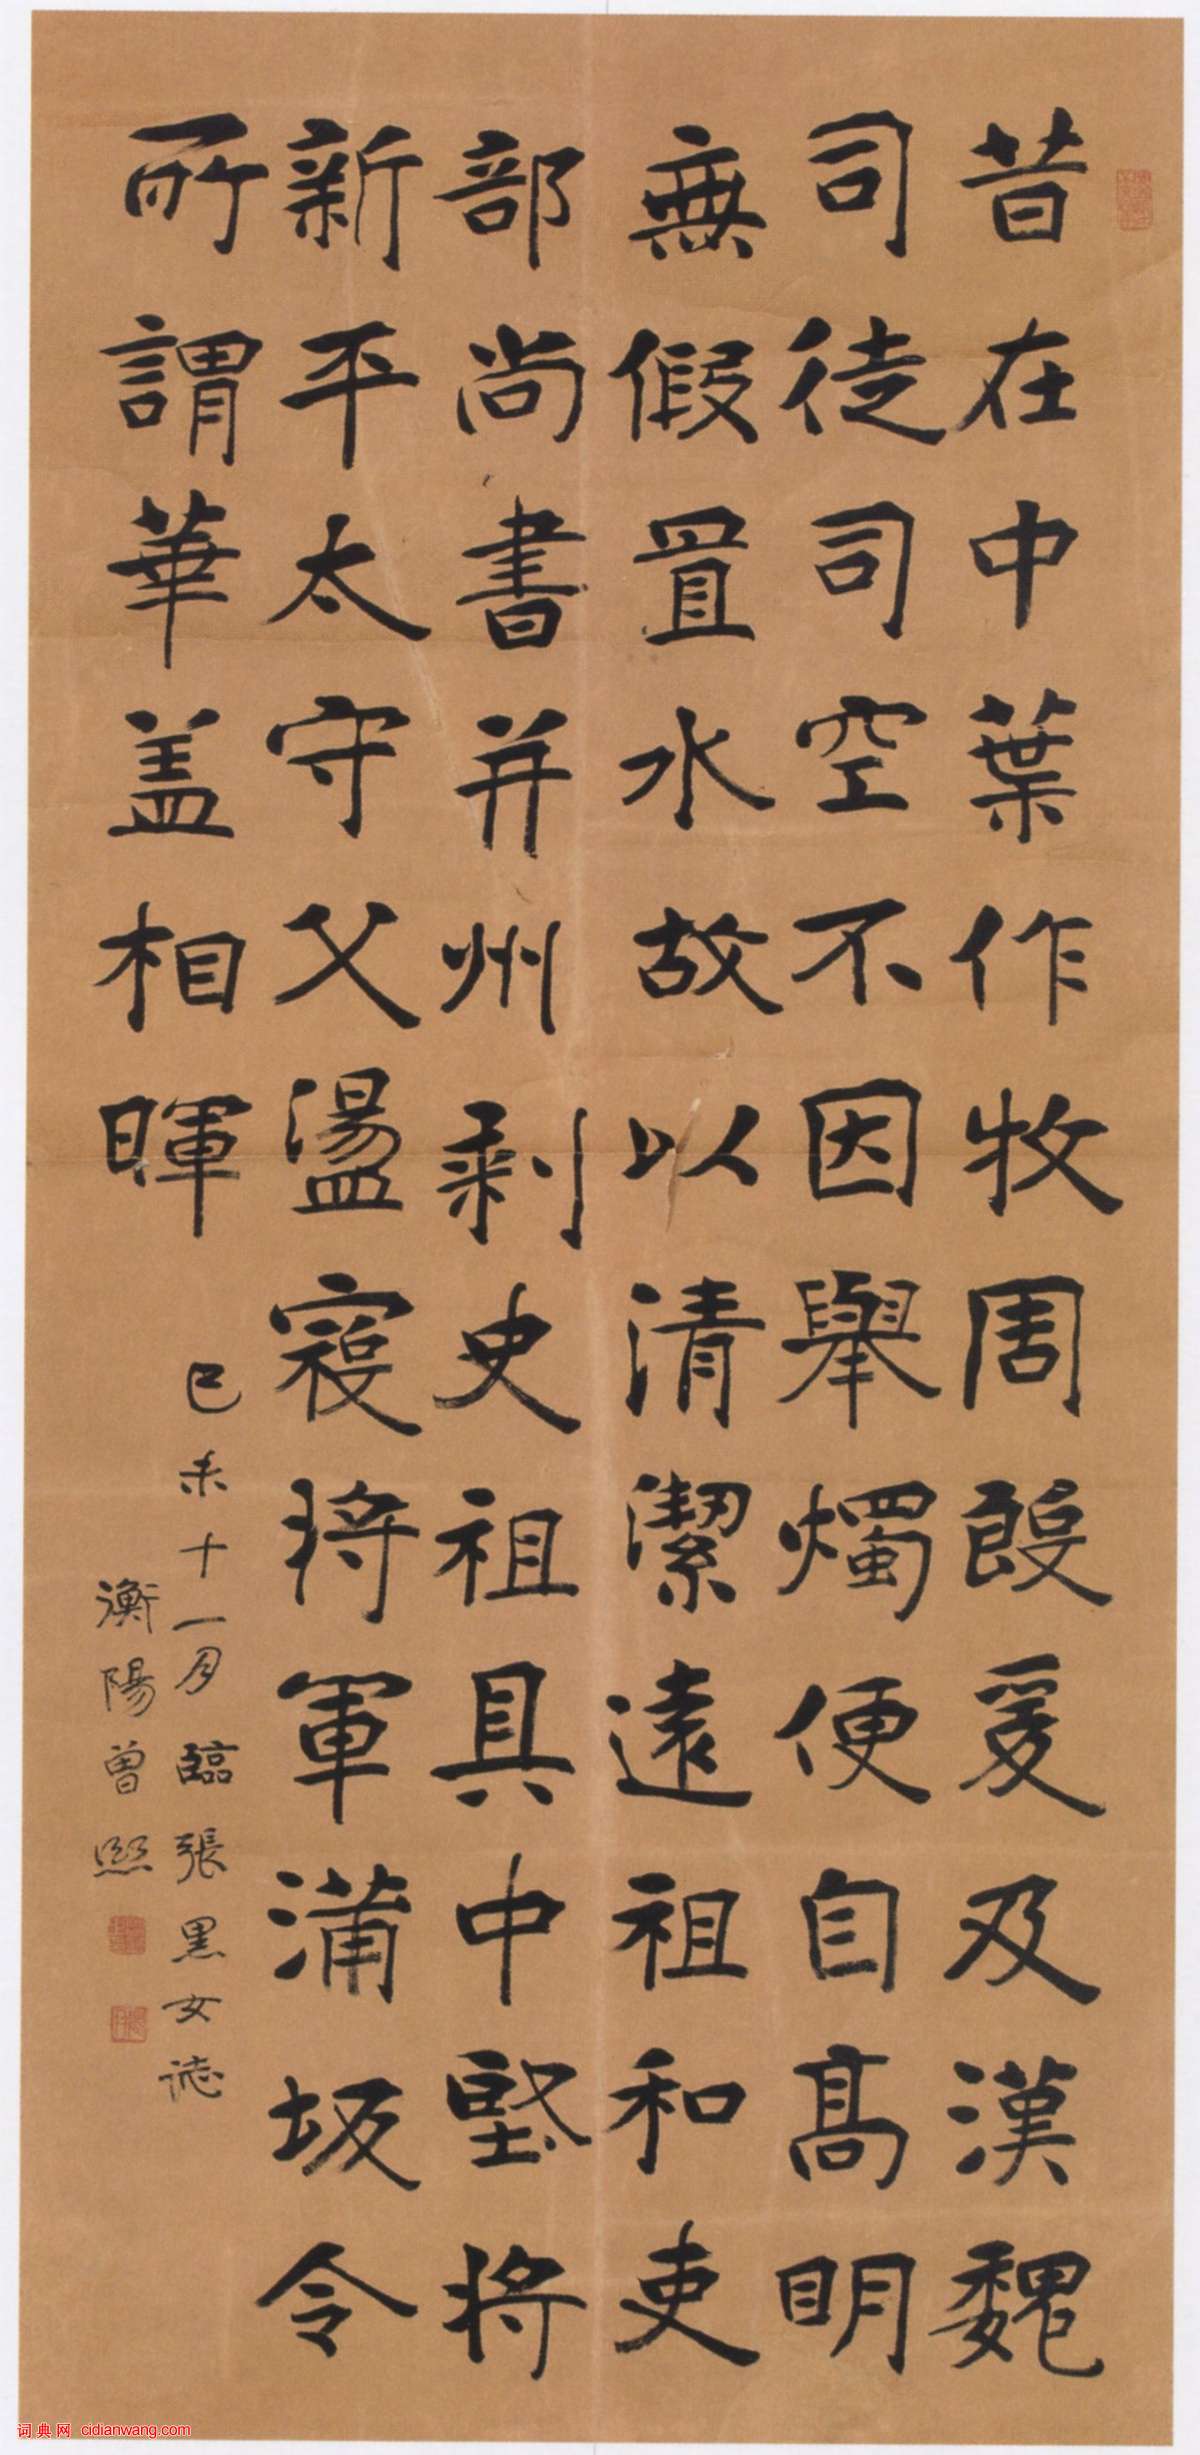 昔在中葉作牧周殷爰及漢魏
司徒司空不因舉燭便自高明
無假置水故以清潔遠祖和吏
部尚書并州刺史祖具中堅將
新平太守父盪寇將軍蒲坂令
所謂華盖相暉
己未十一月臨張黑女誌
衡陽曾熙
词典网 cidianwang.com